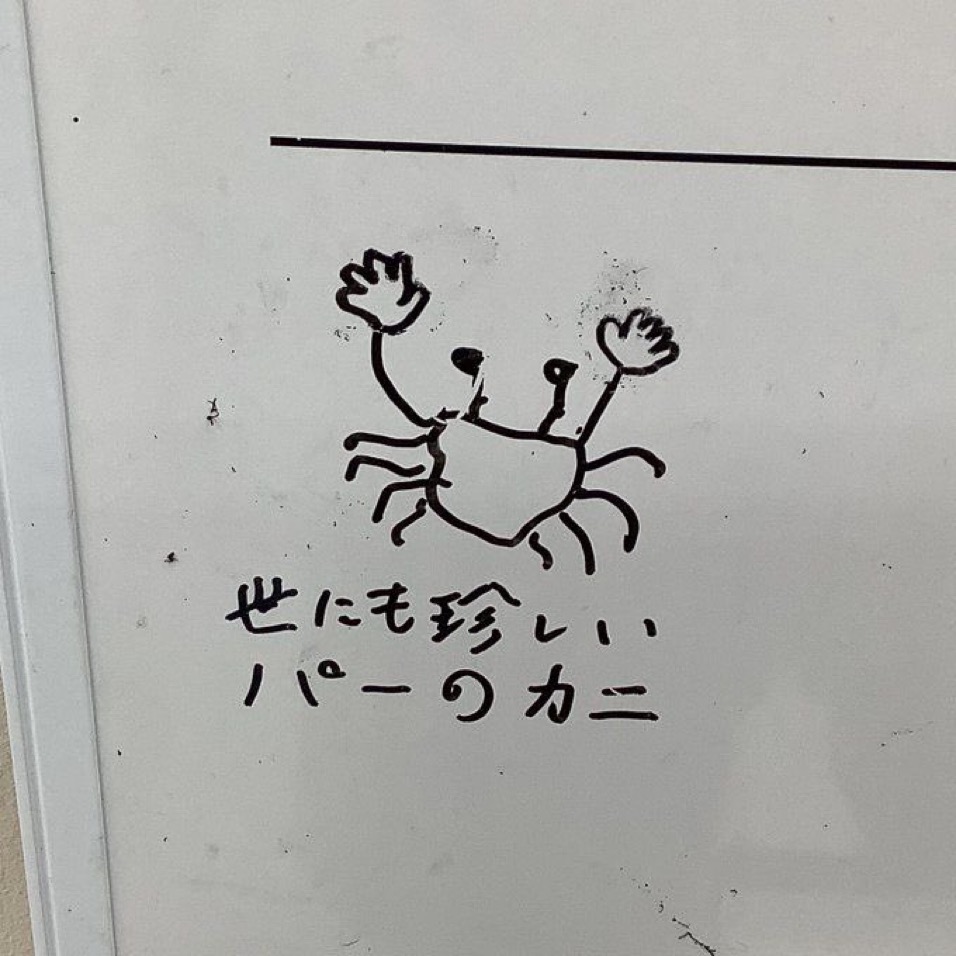 世にも珍しい
パーのカニ